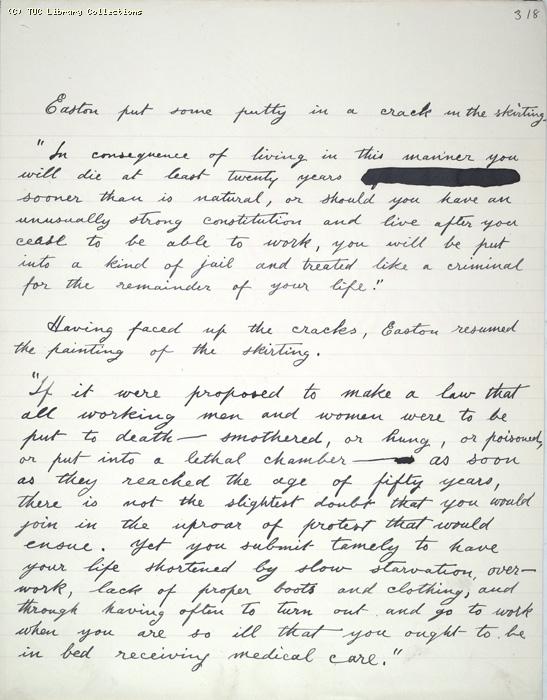 (C) TUC Library Collections
318
Easton put some putty in a crack in the skirting.
"In consequence of living in this manner you
will die at least twenty years
sooner than is natural, or should you have an
unusually strong constitution and live after you
cease to be able to work, you will be put
into a kind of jail and treated like a criminal
for the remainder of your life."
Having faced up the cracks, Easton resumed
the painting of the skirting.
"If it were proposed to make a law that
all working men and women were to be
put to death — smothered, or hung, or poisoned,
or put into a lethal chamber — as soon
as they reached the age of fifty years,
there is not the slightest doubt that you would
join in the uproar of protest that would
ensue. Yet you submit tamely to have
your life shortened by slow starvation, over-
work, lack of proper boots and clothing, and
through having often to turn out and go to work
when you are so ill that you ought to be
in bed receiving medical care."